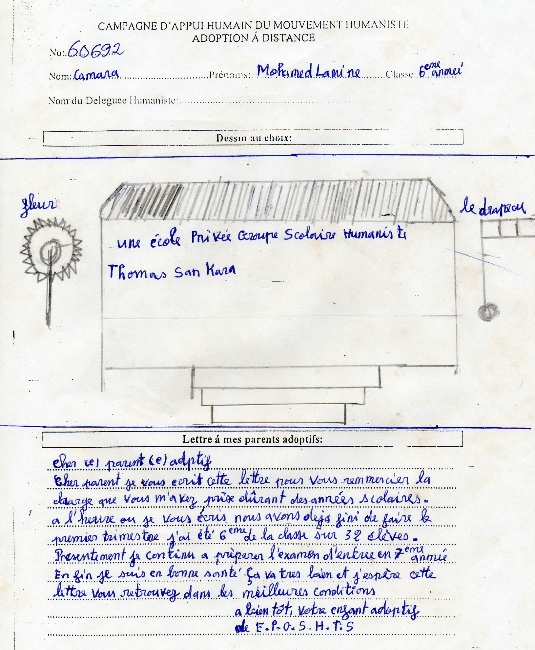 CAMPAGNE D'APPUI HUMAIN DU MOUVEMENT HUMANISTE
ADOPTION Á DISTANCE
No: 60692
Nom: Camara Prénoms: Mohamed Lamine Classe: 6eme année
Nom du Deleguee Humaniste:
Dessin au choix:
fleur
le drapeau
une école Privée Groupe Scolaire Humaniste
Thomas San Kara
Lettre á mes parents adoptifs:
cher (e) parent (e) adptif
Cher parent je vous ecrit cette lettre pour vous remmercier la
charge que vous m'avez prise dûrant des années scolaires.
a l'heure ou je vous écris nous avons deja fini de faire le
premier trimestre j'ai été 6eme de la classe sur 32 elèves.
Presentement je continu a préparer l'examon d'entre en 7eme année
En fin je suis en bonne santé ça va tres bien et j'espère cette
lettre vous retrouvez dans les meilleures conditions
a bien tôt, votre enfant adoptif
de E.P.G.S.H.T.S